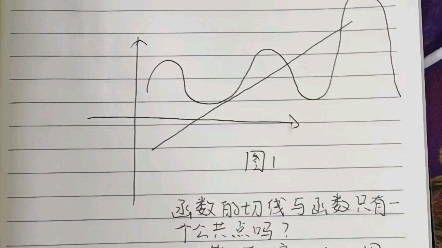 图1
函数的切线与函数只有一
个公共点吗?